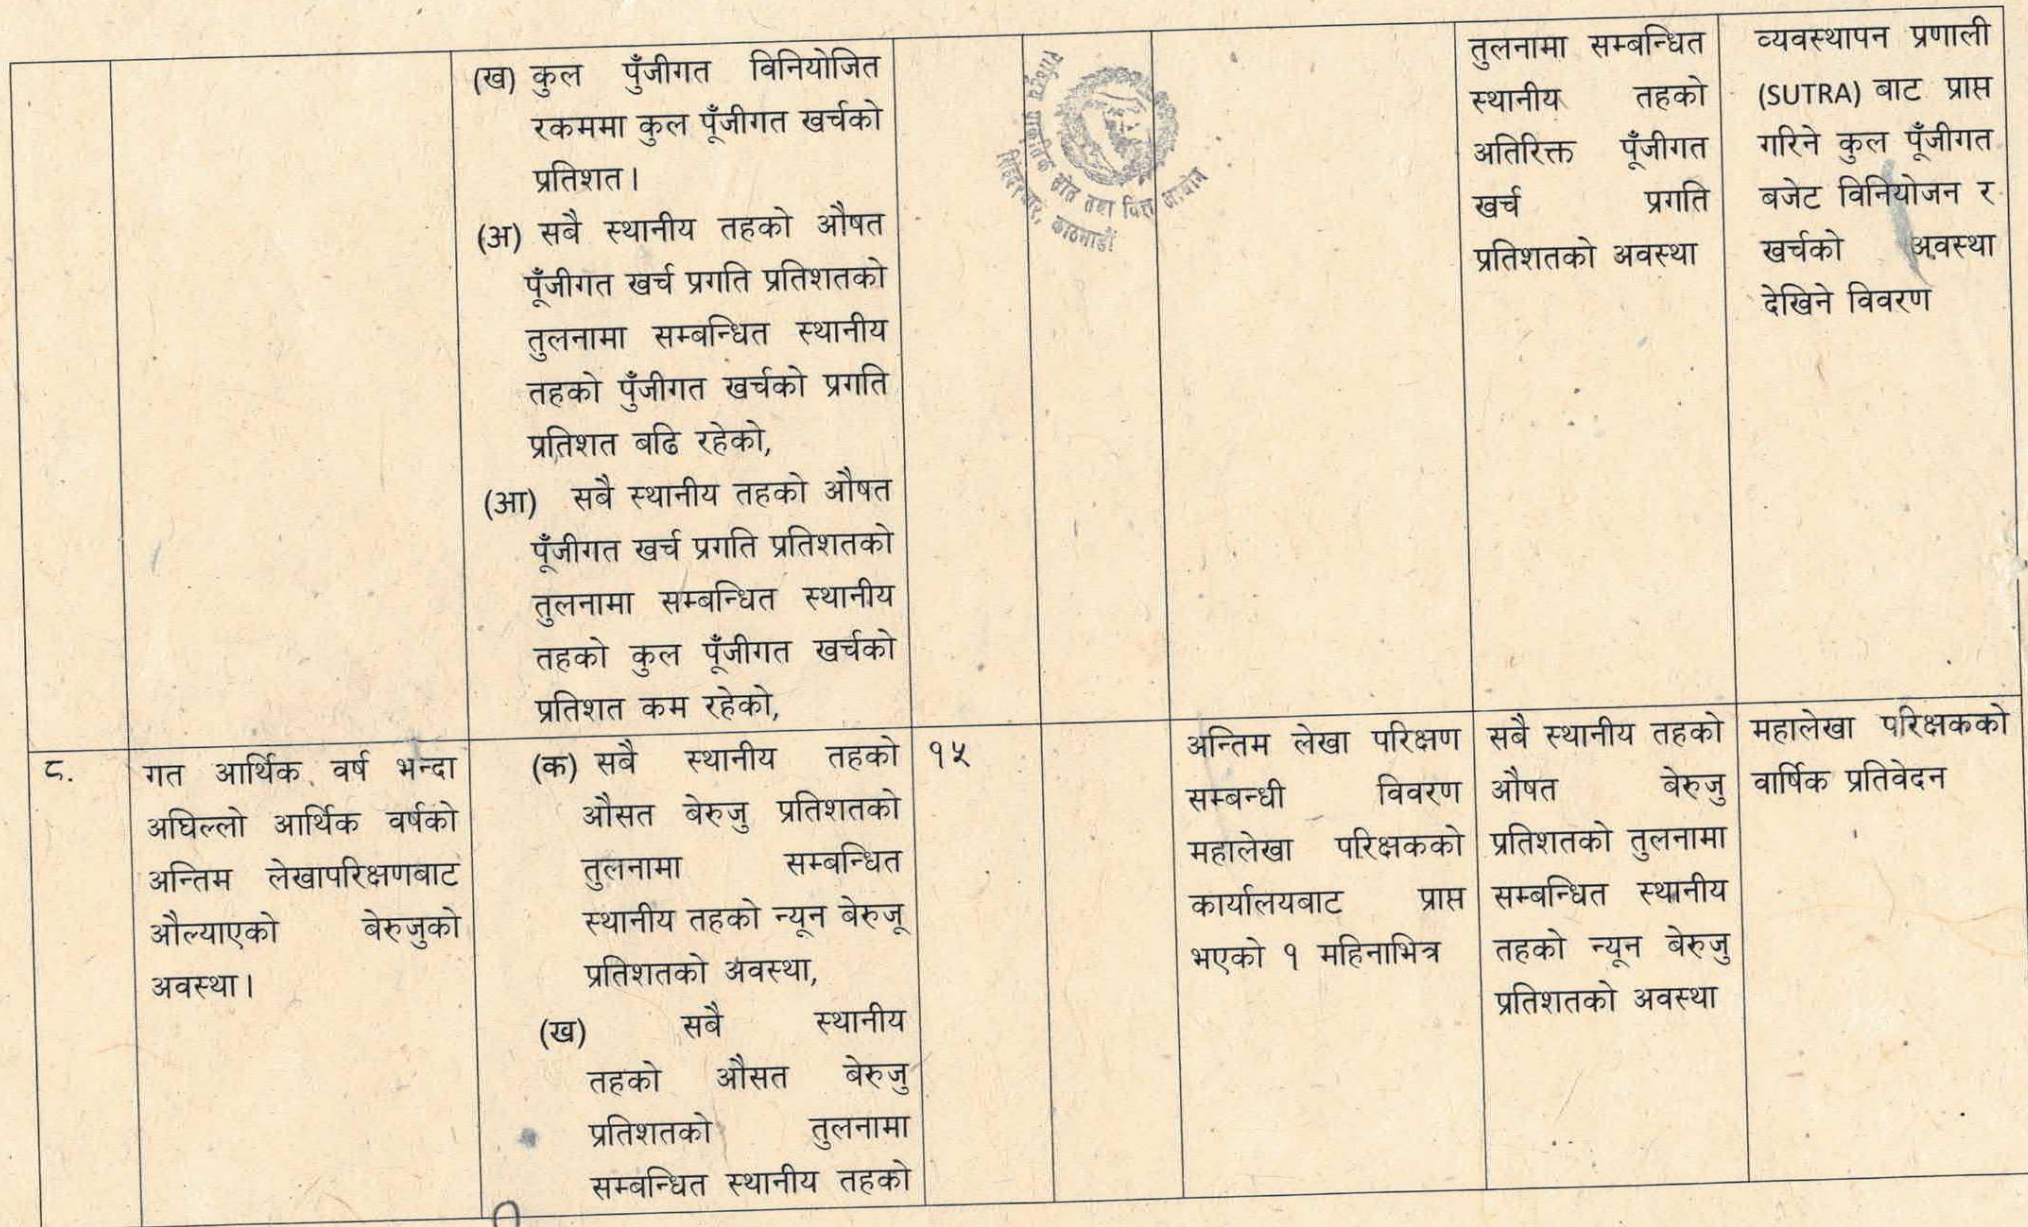 (ख) कुल पुँजीगत विनियोजित
रकममा कुल पूँजीगत खर्चको
प्रतिशत।
(अ) सबै स्थानीय तहको औषत
पूँजीगत खर्च प्रगति प्रतिशतको
तुलनामा सम्बन्धित स्थानीय
तहको पुँजीगत खर्चको प्रगति
प्रतिशत बढि रहेको,
(आ) सबै स्थानीय तहको औषत
पूँजीगत खर्च प्रगति प्रतिशतको
तुलनामा सम्बन्धित स्थानीय
तहको कुल पूँजीगत खर्चको
प्रतिशत कम रहेको,
स्रोत तथा वित्त आयोग
काठमाडौं
तुलनामा सम्बन्धित
स्थानीय तहको
अतिरिक्त पूँजीगत
खर्च प्रगति
प्रतिशतको अवस्था
व्यवस्थापन प्रणाली
(SUTRA) बाट प्राप्त
गरिने कुल पूँजीगत
बजेट विनियोजन र
खर्चको अवस्था
देखिने विवरण
८.
गत आर्थिक वर्ष भन्दा
अघिल्लो आर्थिक वर्षको
अन्तिम लेखापरिक्षणबाट
औल्याएको बेरुजुको
अवस्था।
(क) सबै स्थानीय तहको
औसत बेरुजु प्रतिशतको
तुलनामा सम्बन्धित
स्थानीय तहको न्यून बेरुजू
प्रतिशतको अवस्था,
(ख) सबै स्थानीय
तहको औसत बेरुजु
प्रतिशतको तुलनामा
सम्बन्धित स्थानीय तहको
१५
अन्तिम लेखा परिक्षण
सम्बन्धी विवरण
महालेखा परिक्षकको
कार्यालयबाट प्राप्त
भएको १ महिनाभित्र
सबै स्थानीय तहको
औषत बेरुजु
प्रतिशतको तुलनामा
सम्बन्धित स्थानीय
तहको न्यून बेरुजु
प्रतिशतको अवस्था
महालेखा परिक्षकको
वार्षिक प्रतिवेदन